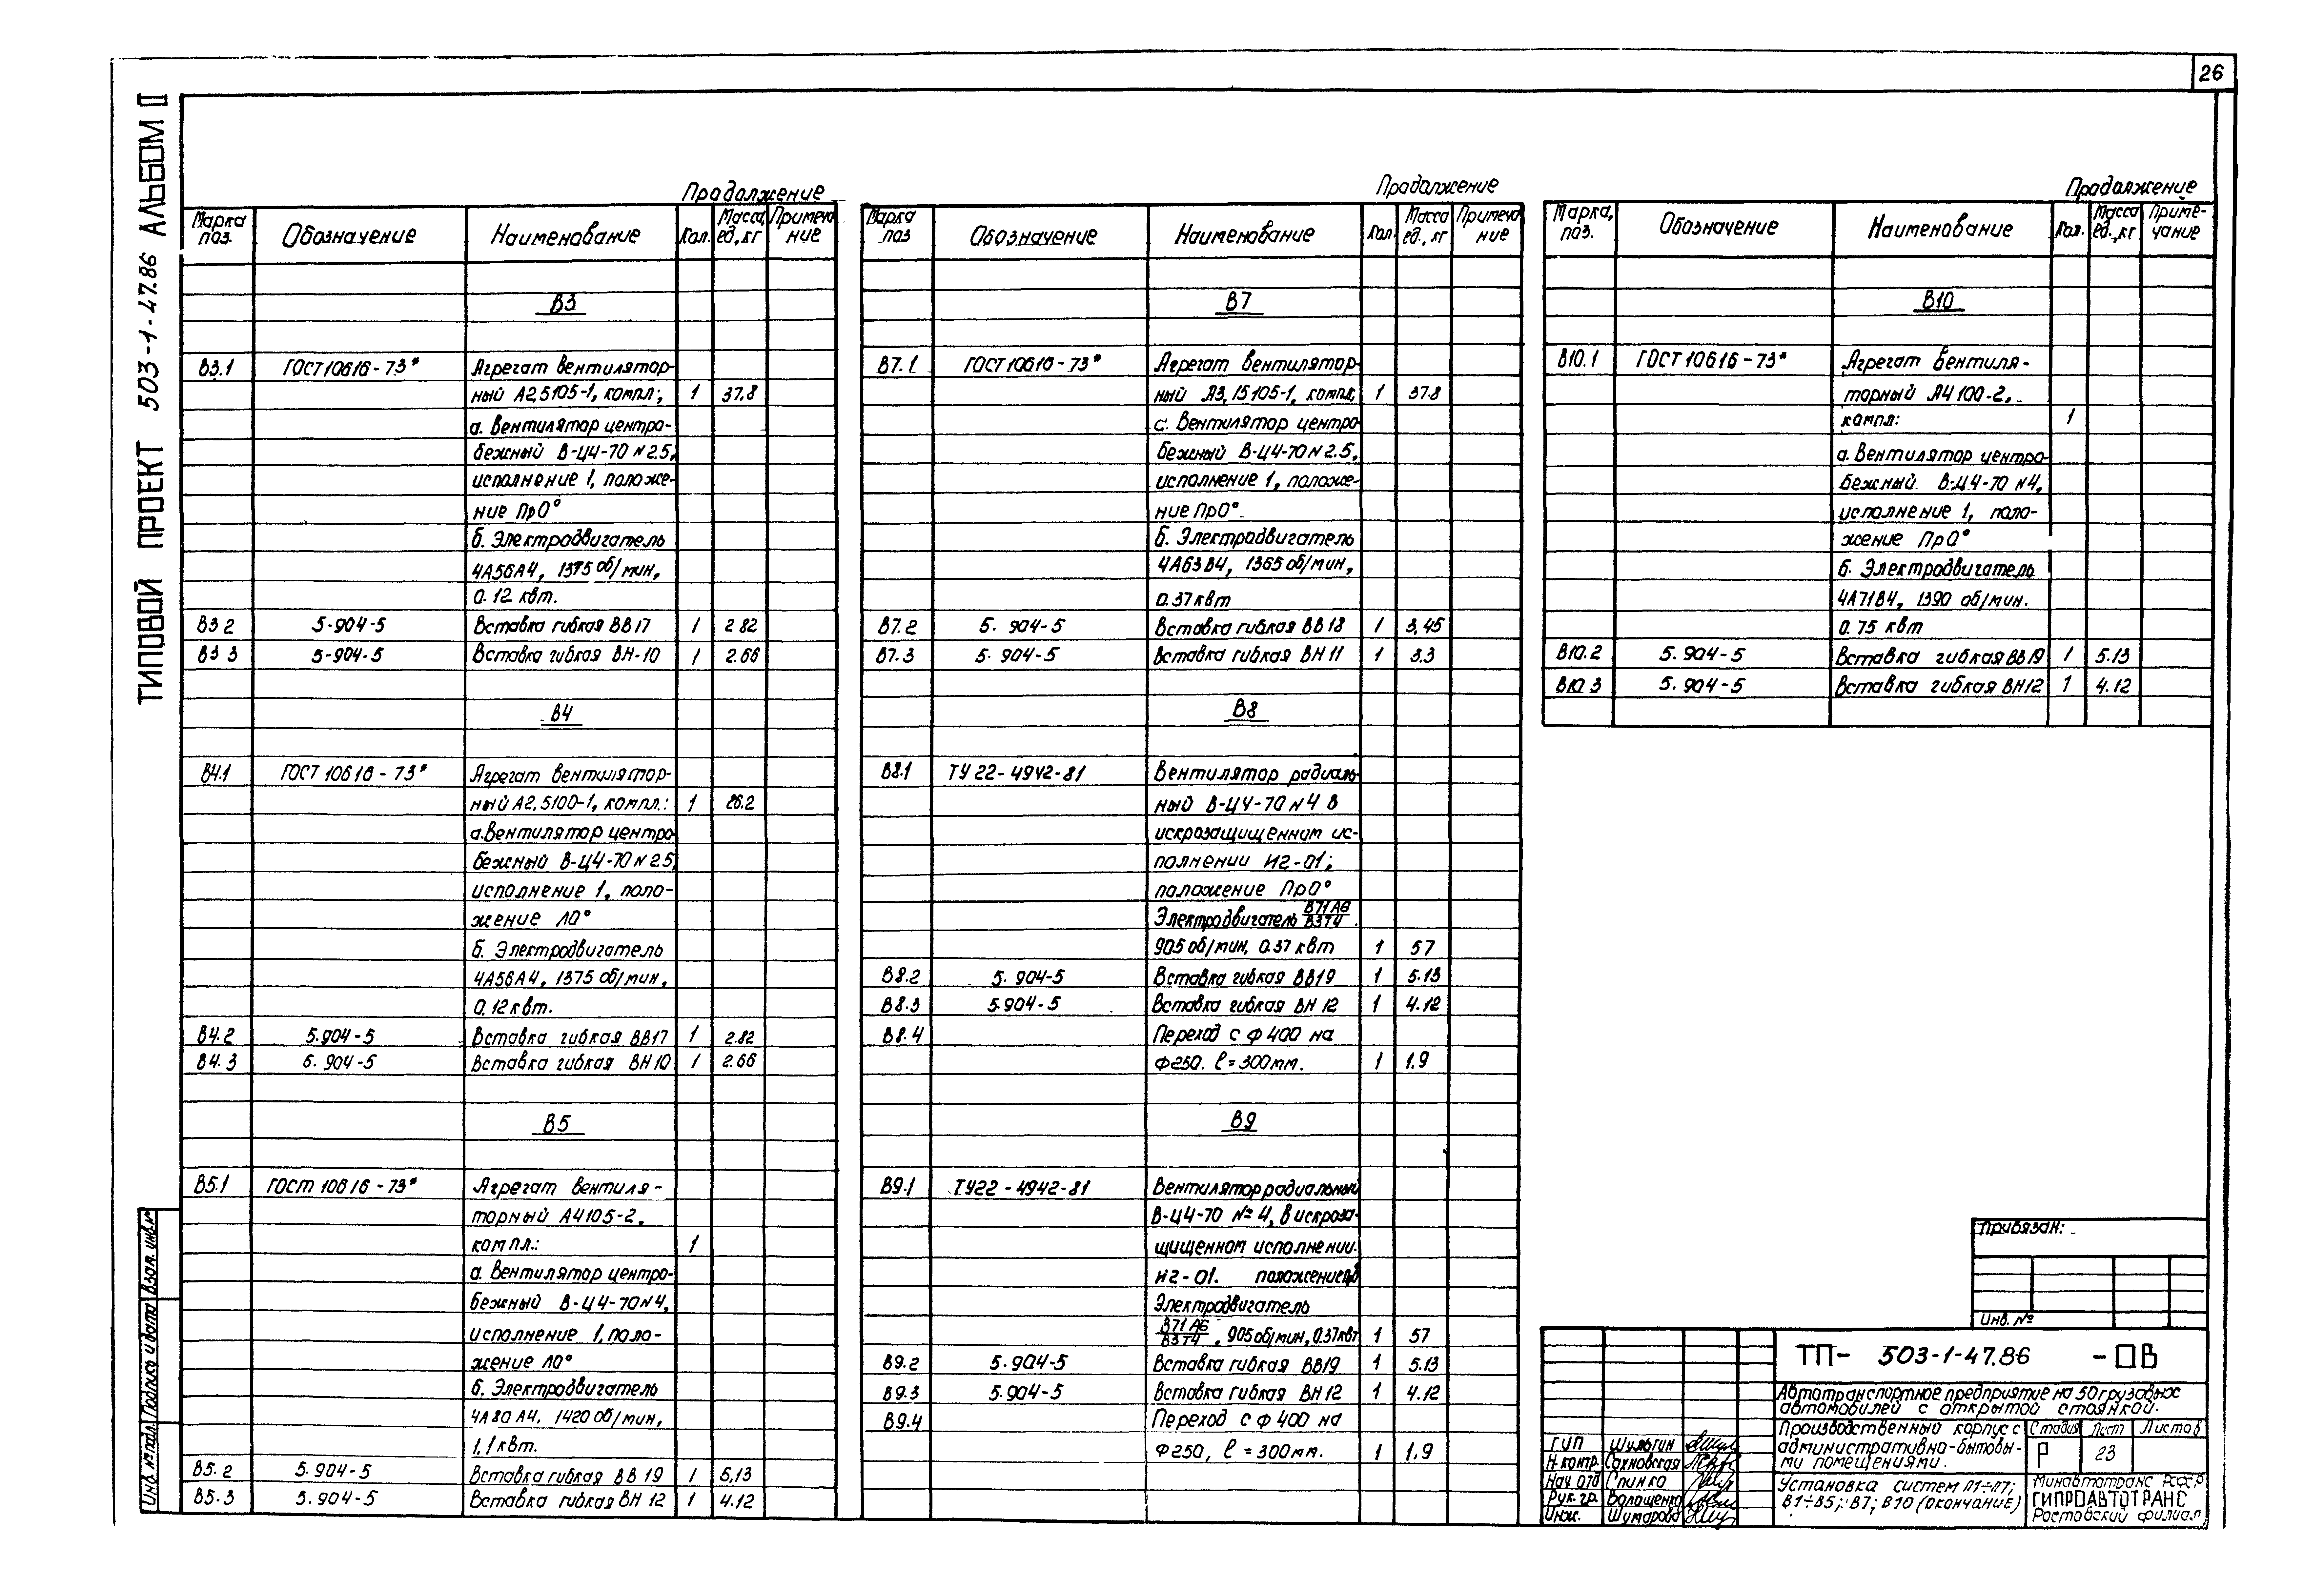 26
ТИПОВОЙ ПРОЕКТ 503-1-47.86 АЛЬБОМ II
Продолжение
Марка поз. Обозначение Наименование Кол. Масса, ед., кг Примеча ние
В3
В3.1 ГОСТ 10616-73* Агрегат вентилятор-
ный А2,5105-1, компл; 1 37.8
а. Вентилятор центро-
бежный В-Ц4-70 N 2.5,
исполнение 1, положе-
ние Пр0°
б. Электродвигатель
4А56А4, 1375 об/мин,
0.12 квт.
В3 2 5-904-5 Вставка гибкая ВВ17 1 2 82
В3 3 5-904-5 Вставка гибкая ВН-10 1 2.66
В4
В4.1 ГОСТ 10616-73* Агрегат вентилятор-
ный А2,5100-1, компл.: 1 26.2
а.Вентилятор центро
бежный В-Ц4-70 N 2.5,
исполнение 1, поло-
жение Л0°
б. Электродвигатель
4А56А4, 1375 об/мин,
0.12 квт.
В4.2 5.904-5 Вставка гибкая ВВ17 1 2.82
В4.3 5.904-5 Вставка гибкая ВН 10 1 2.66
В5
В5.1 ГОСТ 10616-73* Агрегат вентиля-
торный А4105-2,
компл.: 1
а. Вентилятор центро-
бежный В-Ц4-70 N4,
исполнение 1, поло-
жение Л0°
б. Электродвигатель
4А80А4, 1420 об/мин,
1,1 квт.
В5.2 5.904-5 Вставка гибкая ВВ 19 1 5,13
В5.3 5.904-5 Вставка гибкая ВН 12 1 4.12
Продолжение
Марка поз Обозначение Наименование Кол. Масса ед., кг Примеча ние
В7
В7.1 ГОСТ 10616-73* Агрегат вентилятор-
ный А3,15105-1, компл; 1 37.8
с. Вентилятор центро
бежный В-Ц4-70 N 2.5,
исполнение 1, положе-
ние Пр0°
б. Электродвигатель
4А63В4, 1365 об/мин,
0.37 квт
В7.2 5.904-5 Вставка гибкая ВВ 18 1 3,45
В7.3 5.904-5 Вставка гибкая ВН 11 1 3.3
В8
В8.1 ТУ 22-4942-81 Вентилятор радиаль
ный В-Ц4-70 N 4 в
искрозащищенном ис-
полнении И2-01;
положение Пр0°
Электродвигатель В71А6/В3Т4
905 об/мин, 0.37 квт 1 57
В8.2 5.904-5 Вставка гибкая ВВ19 1 5.13
В8.3 5.904-5 Вставка гибкая ВН 12 1 4.12
В8.4 Переход с ф 400 на
ф250. ℓ=300мм. 1 1.9
В9
В9.1 ТУ22-4942-81 Вентилятор радиальный
В-Ц4-70 № 4, в искроза-
щищенном исполнении.
И2-01. положение
Электродвигатель
В71А6/В3Т4, 905 об/мин, 0.37 квт 1 57
В9.2 5.904-5 Вставка гибкая ВВ19 1 5.13
В9.3 5.904-5 Вставка гибкая ВН 12 1 4.12
В9.4 Переход с ф 400 на
ф250, ℓ=300мм. 1 1,9
Продолжение
Марка, поз. Обозначение Наименование Кол. Масса ед., кг Приме-чание
В10
В10.1 ГОСТ 10616-73* Агрегат вентиля-
торный А4 100-2,
компл: 1
а. Вентилятор центро-
бежный В-Ц4-70 N4,
исполнение 1, поло-
жение Пр0°
б. Электродвигатель
4А71В4, 1390 об/мин.
0.75 квт
В10.2 5.904-5 Вставка гибкая ВВ19 1 5.13
В10.3 5.904-5 Вставка гибкая ВН12 1 4.12
Привязан:
Инв. №
ТП- 503-1-47.86 -ОВ
Автотранспортное предприятие на 50 грузовых
автомобилей с открытой стоянкой.
Производственный корпус с
административно-бытовы-
ми помещениями.
Стадия Лист Листов
Р 23
Установка систем П1÷П7;
В1÷В5; В7; В10 (окончание)
Минавтотранс РСФСР
ГИПРОАВТОТРАНС
Ростовский филиал
ГИП Шульгин
Н.контр. Сахновская
Нач отд Спинко
Рук. гр. Волощенко
Инж. Шумарова
Инв. № подл. Подпись и дата Взам. инв. №